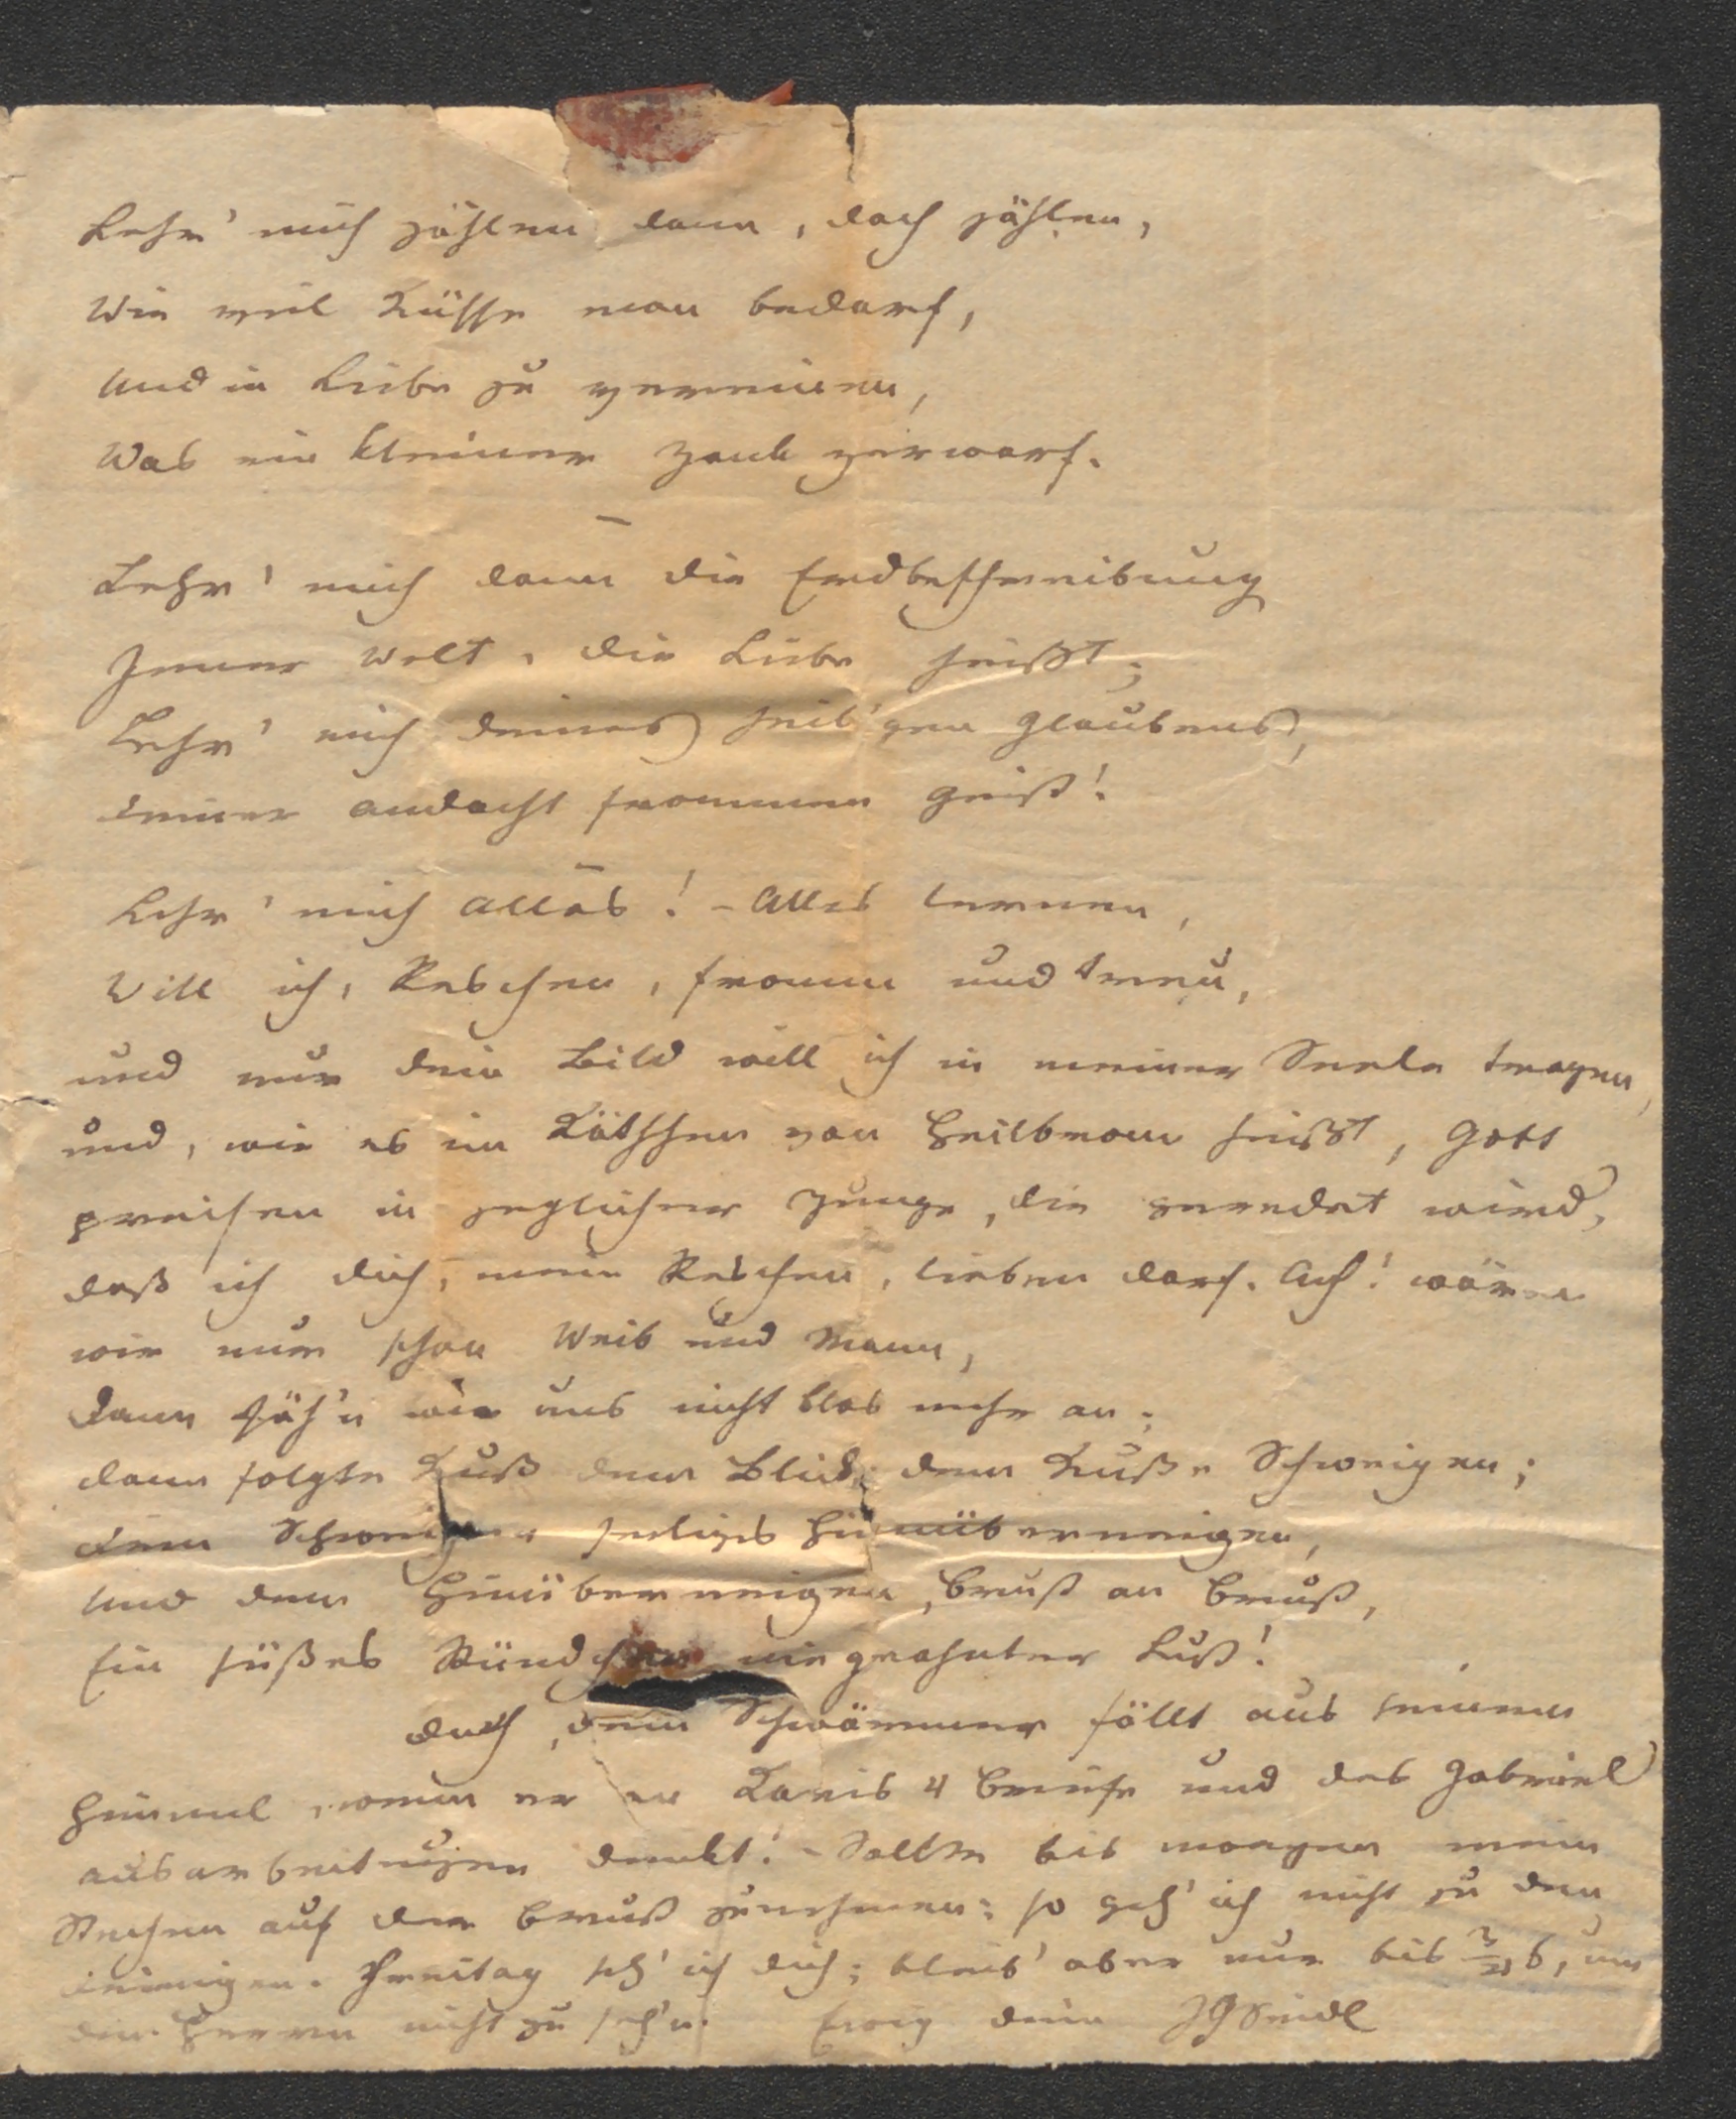 Lehr' mich zählen dann, doch zählen,
Wie viel Küsse man bedarf,
Und in Liebe zu vereinen,
Was ein kleiner Zank zerwarf.
—
Lehr' mich dann die Erdbeschreibung
Jener Welt, die Liebe heißt;
Lehr' mich deines heil'gen Glaubens,
Deiner Andacht frommen Geist!
—
Lehr' mich Alles! – Alles lernen,
Will ich, Reschen, fromm und treu,
und nur dein Bild will ich in meiner Seele tragen,
und, wie es im Käthchen von Heilbronn heißt, Gott
preisen in jeglicher Zunge, die geredet wird,
daß ich dich, mein Reschen, lieben darf. Ach! wären
wir nur schon Weib und Mann,
Dann säh'n wir uns nicht blos mehr an;
dann folgte Kuß dem Blick, dem Kuße Schweigen;
dem Schweigen seliges Hinüberneigen,
Und dem Hinüberneigen, Brust an Brust,
Ein süßes Stündchen nie geahnter Lust!
Doch, dein Schwärmer fällt aus seinem
Himmel, wenn er an 4 Briefe und des Gabriel
Ausarbeitungen denkt! – Sollte bis morgen mein
Stechen auf der Brust zunehmen: so geh' ich nicht zu den
Deinigen. Freitag seh' ich dich; bleib' aber nur bis 6, um
den Herrn nicht zu seh'n. Ewig dein JGSeidl